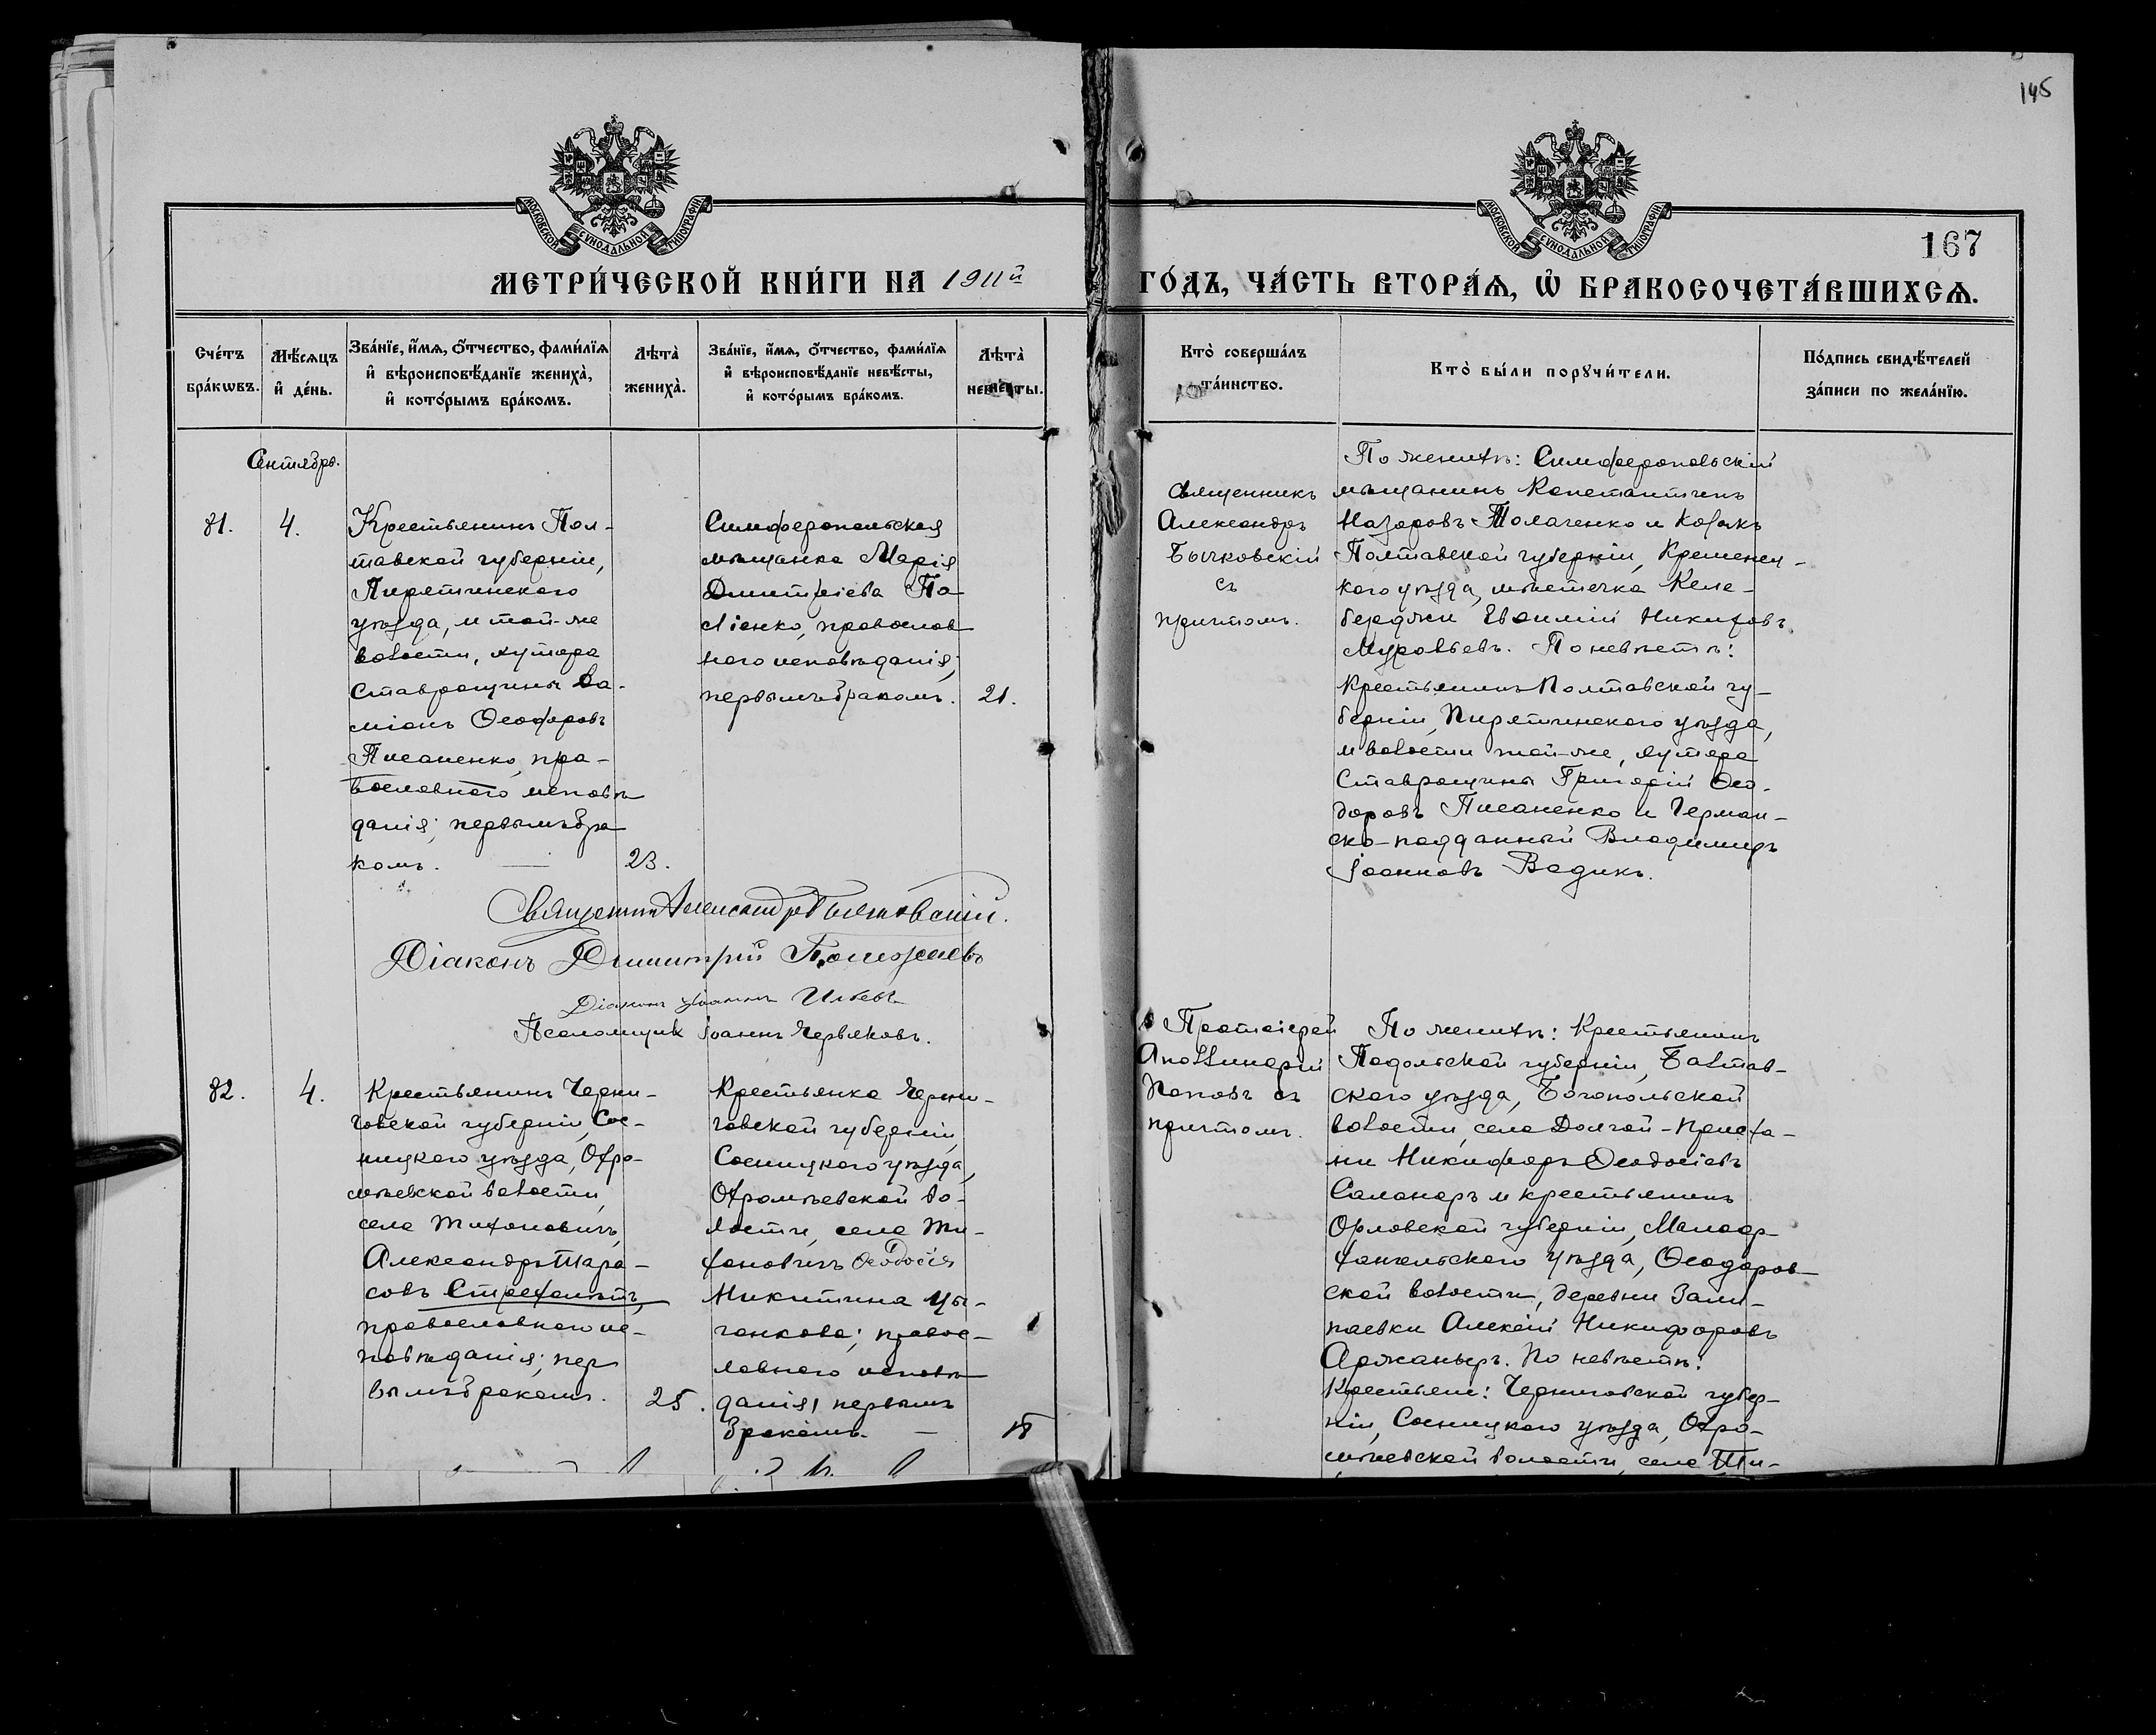 145
МОСКОВСКОЙ СѴНОДАЛЬНОЙ ТИПОГРАФІИ
МОСКОВСКОЙ СѴНОДАЛЬНОЙ ТИПОГРАФІИ
167
МЕТРИ́ЧЕСКОЙ КНИ́ГИ НА 1911й
ГО́ДЪ, ЧА́СТЬ ВТОРА́Ѧ, Ѽ БРАКОСОЧЕТА́ВШИХСѦ.
Сче́тъ
бра́кѡвъ.
Мѣ́сѧцъ
и҆ де́нь.
Зва́нїе, и҆́мѧ, ѻ҆́тчество, фами́лїѧ
и҆ вѣроисповѣ́данїе жениха̀,
и҆ кото́рымъ бра́комъ.
Лѣта̀
жениха̀.
Зва́нїе, и҆́мѧ, ѻ҆́тчество, фами́лїѧ
и҆ вѣроисповѣ́данїе невѣ́сты,
и҆ кото́рымъ бра́комъ.
Лѣта̀
невѣ́сты.
Кто̀ соверша́лъ
та́инство.
Кто̀ бы́ли порꙋчи́тели.
По́дпись свидѣ́телей
за́писи по жела́нїю.
Сентябрь.
81.
4.
Крестьянинъ Пол-
тавской губерніи,
Пирятинскаго
уѣзда, и той-же
волости, хутора
Ставрощины Да-
міанъ Ѳеодоровъ
Писаненко, пра-
вославного исповѣ
данія; первымъ бра
комъ.
23.
Симферопольская
мѣщанка Марія
Димитріева Па
ліенко, православ
ного исповѣданія;
первымъ бракомъ.
21.
Священникъ
Александръ
Бычковскій
съ
причтомъ.
По женихѣ: Симферопольскій
мѣщанинъ Константинъ
Назаровъ Толаченко и козакъ
Полтавской губерніи, Кременчу-
кого уѣзда, мѣстечка Келе-
бердяи Евѳимій Никитовъ
Муравьевъ. По невѣстѣ:
Крестьянинъ Полтавской гу-
берніи, Пирятинскаго уѣзда,
и волости той-же, хутора
Ставрощины Григорій Ѳео-
доровъ Писаненко и Герман-
ско-подданный Владимиръ
Іоанновъ Вадикъ.
Священникъ Александръ Бычковскій.
Діаконъ Димитрій
Діаконъ Іоаннъ
Псаломщикъ Іоаннъ Червяковъ.
82.
4.
Крестьянинъ Черни-
говской губерніи, Сос-
ницкого уѣзда, Охра-
мѣевской волости,
села Тихоновичъ,
Александръ Тара-
совъ Стрехолетъ,
православного ис-
повѣданія; пер
вымъ бракомъ.
25.
Крестьянка Черни-
говской губерніи,
Сосницкого уѣзда,
Охрамѣевской во-
лости, села Ти-
хоновичъ Ѳеодосія
Никитина Цы-
ганкова; правос-
лавного исповѣ
данія, первымъ
бракомъ.
18
Протоіерей
Аполлинарій
Поповъ съ
причтомъ.
По женихѣ: Крестьянинъ
Подольской губерніи, Балтав-
ского уѣзда, Богопольской
волости, села Долгой-Приста-
ни Никифоръ Ѳеодосіевъ
Саламаръ и крестьянинъ
Орловской губерніи, Малоар-
хангельского уѣзда, Ѳеодоров-
ской волости, деревни
Алексій Никифоровъ
По невѣстѣ:
Крестьяне: Черниговской губер-
ніи, Сосницкого уѣзда, Охра-
мѣевской волости, села Ти-